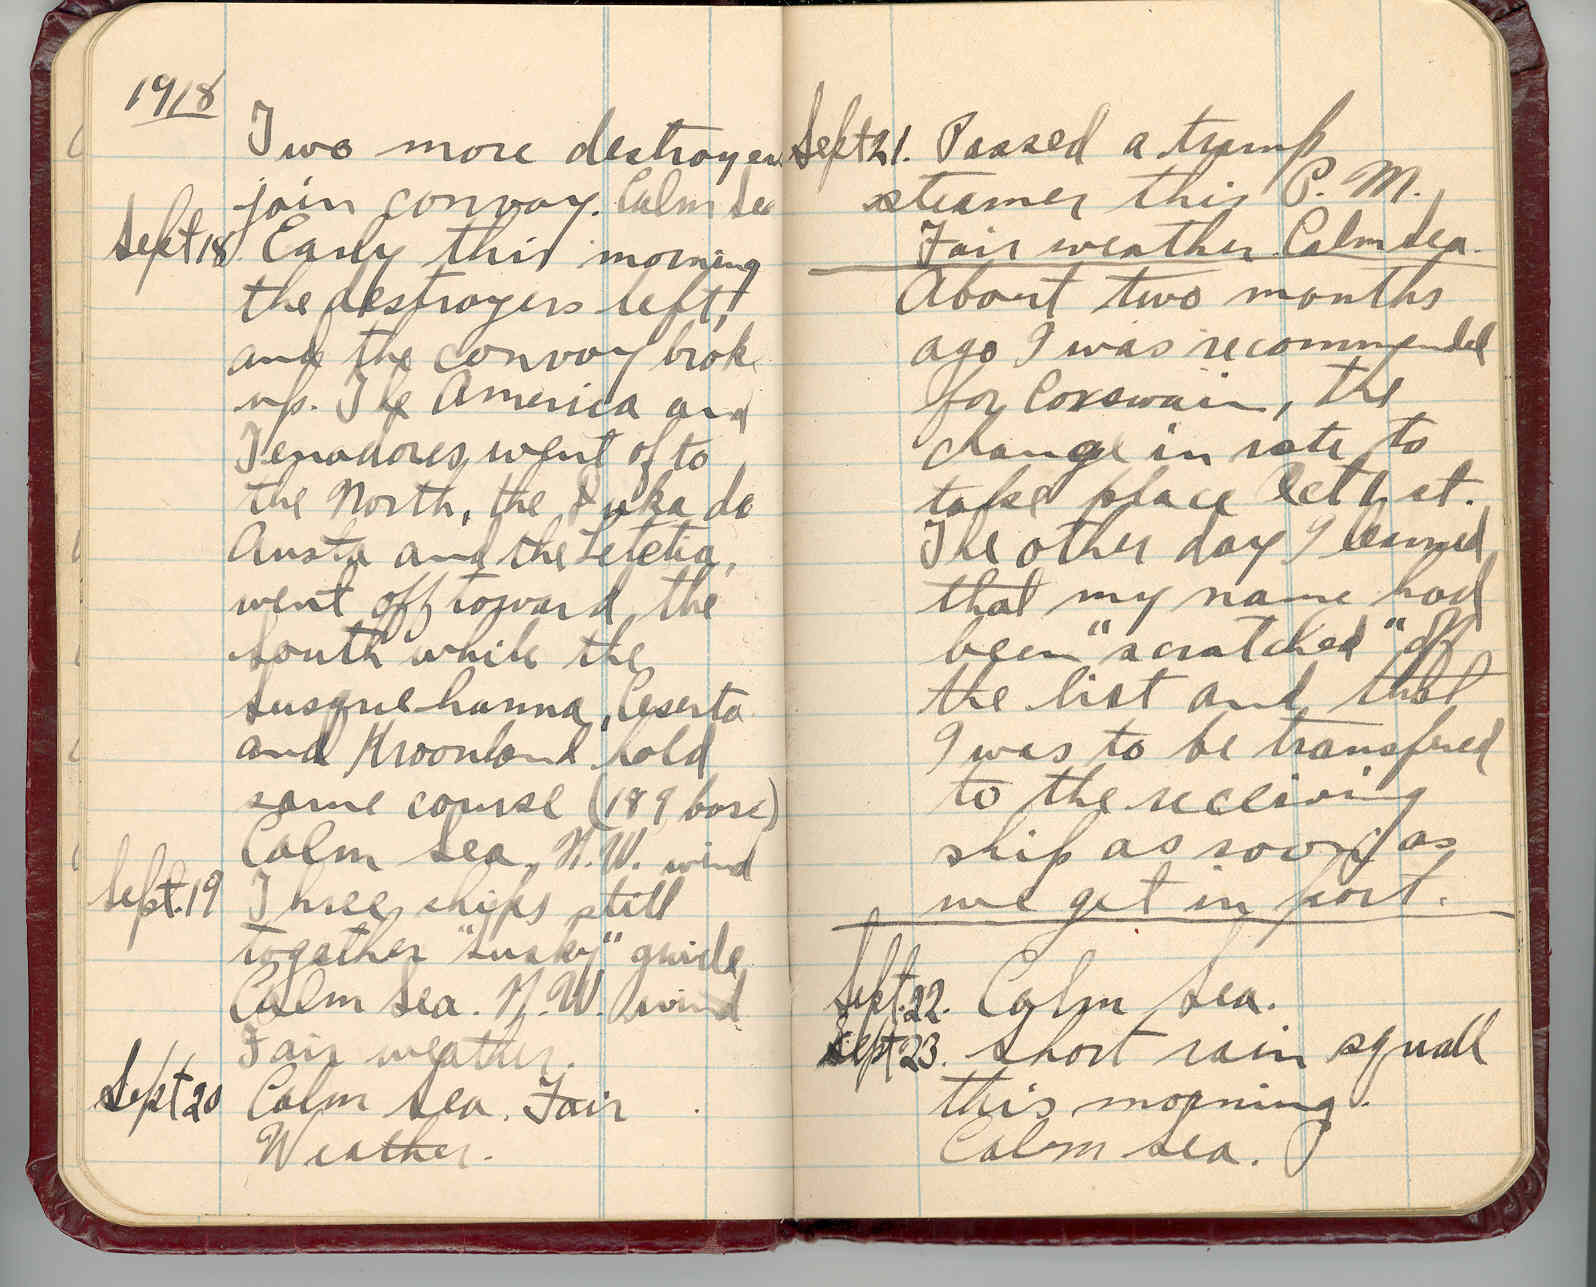 1918
Two more destroyers
join convoy. Calm Sea
Sept 18 Early this morning
the destroyers left,
and the convoy brok
up. The America and
Tenadores went of to
the North, the Duka de
Austa and the Letetia,
went off toward the
South while the
Susquehanna, Ceserta
and Kroonland hold
same course (189 bore)
Calm Sea, N.W. wind
Sept. 19 Three ships still
together "Susky" guide
Calm Sea. N.W. wind
Fair weather.
Sept 20 Calm Sea. Fair
Weather.
Sept 21. Passed a tramp
steamer this P.M.
Fair weather. Calm Sea.
About two months
ago I was recommended
for Coxswain, the
change in rate to
take place Oct 1st.
The other day I learned
that my name had
been "scratched" off
the list and that
I was to be transfered
to the receiving
ship as soon as
we get in port.
Sept. 22. Calm Sea.
Sept 23. Short rain squall
this morning.
Calm Sea.